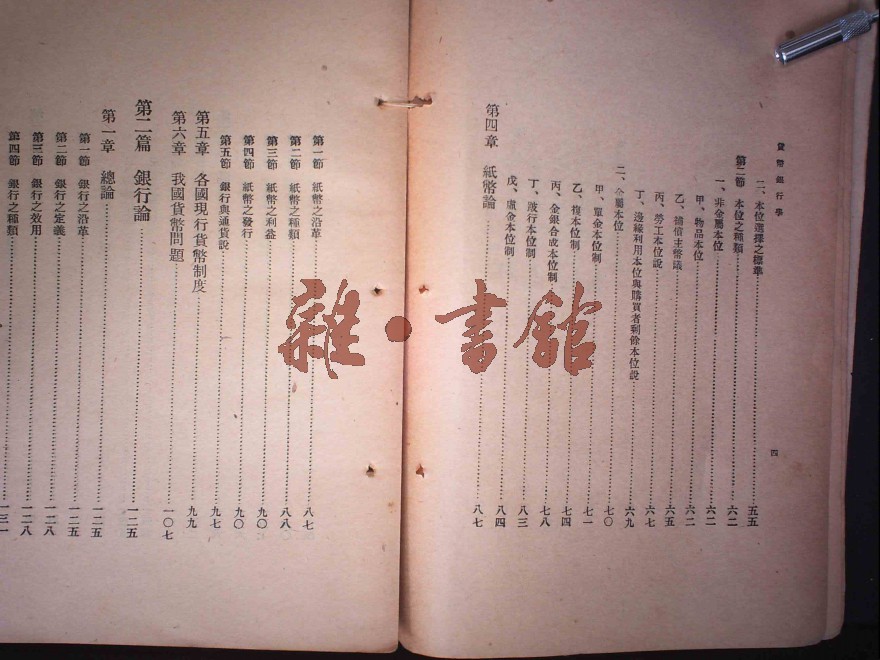 貨幣銀行學
四
二、本位選擇之標準 五五
第三節 本位之種類 六二
一、非金屬本位 六二
甲、物品本位 六二
乙、補信主幣議 六五
丙、勞工本位說 六七
丁、邊緣利用本位與購買者剩餘本位說 六九
二、金屬本位 七〇
甲、單金本位制 七一
乙、複本位制 七四
丙、金銀合成本位制 七八
丁、跛行本位制 八三
戊、虛金本位制 八四
第四章 紙幣論 八七
第一節 紙幣之沿革 八七
第二節 紙幣之種類 八八
第三節 紙幣之利益 九〇
第四節 紙幣之發行 九〇
第五節 銀行與通貨說 九七
第五章 各國現行貨幣制度 九九
第六章 我國貨幣問題 一〇七
第二篇 銀行論 一二五
第一章 總論 一二五
第一節 銀行之沿革 一二五
第二節 銀行之定義 一二八
第三節 銀行之效用 一二八
第四節 銀行之種類 一三一
雜·書館